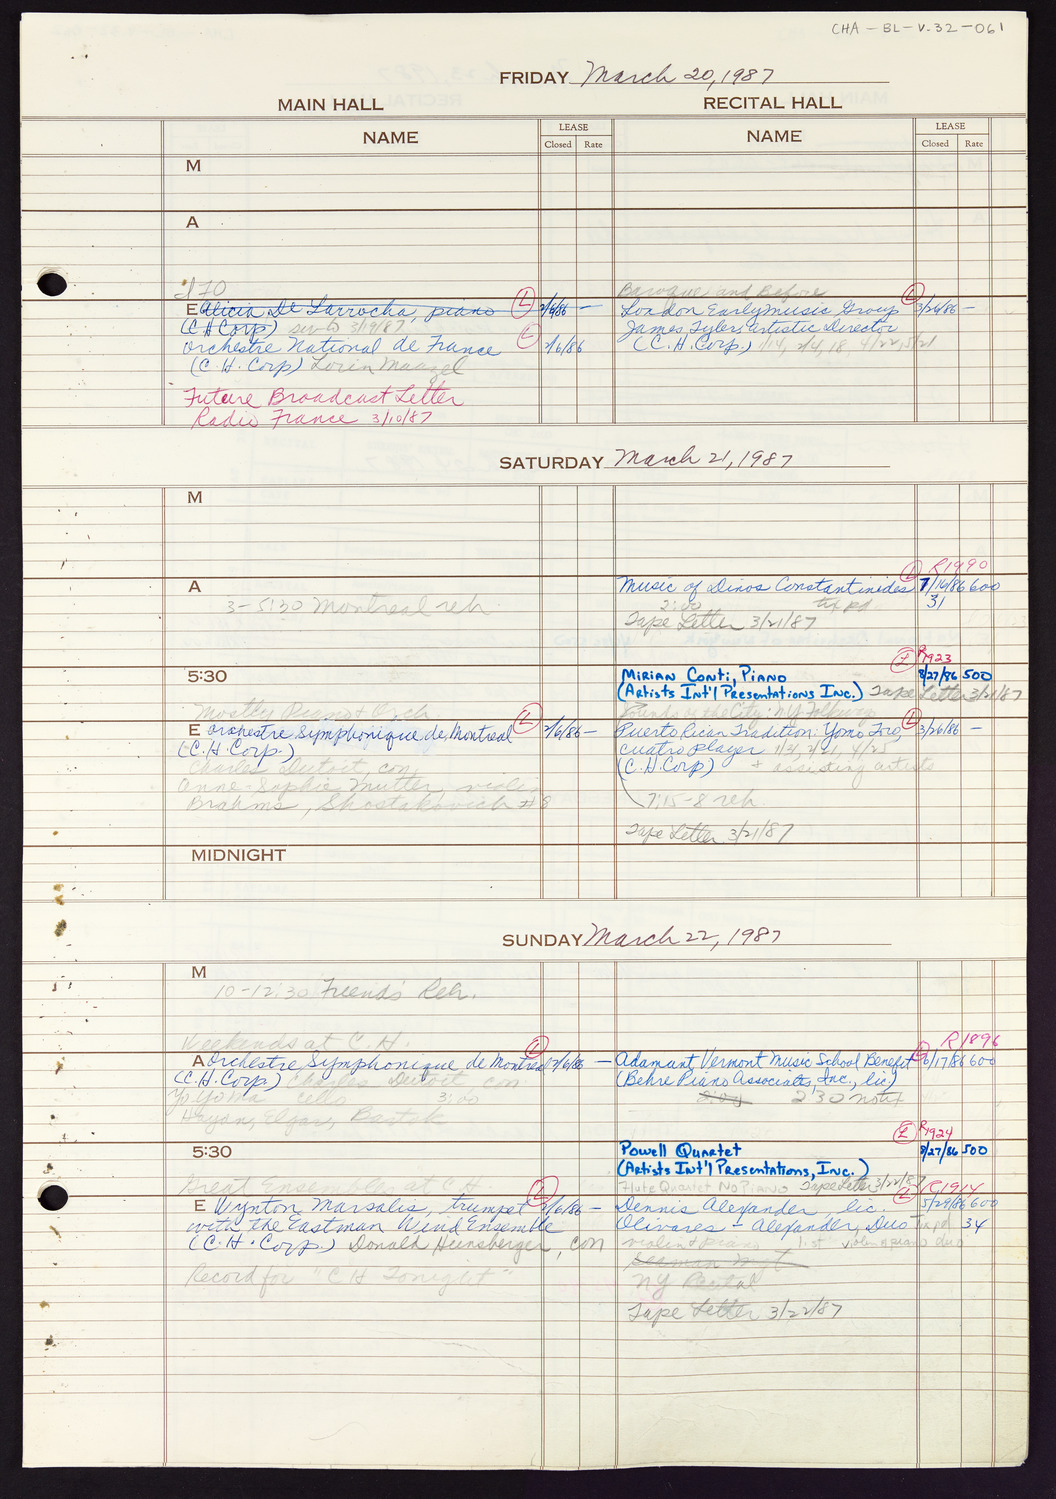 CHA-BL-V.32-061
FRIDAY March 20, 1987
MAIN HALL
RECITAL HALL
NAME
LEASE
Closed Rate
NAME
LEASE
Closed Rate
M
A
E Alicia De Larrocha, piano L 2/6/86 —
(CH Corp) 3/19/87
Orchestre National de France L 2/6/86
(C.H. Corp) Lorin Maazel
Future Broadcast Letter
Radio France 3/10/87
Baroque and Before
London Early Music Group L 3/26/86 —
James Tyler, Artistic Director
(C.H. Corp.) 1/14, 2/4, 18, 4/22, 5/21
SATURDAY March 21, 1987
M
A
3-5:30 Montreal reh.
R1990
Music of Dinos Constantinides L 7/16/86 600
2:00 31
Tape Letter 3/21/87
5:30
R1923
Mirian Conti, Piano L 8/27/86 500
(Artists Int'l Presentations Inc.) Tape Letter 3/21/87
Mostly Piano & Orch
E Orchestre Symphonique de Montreal L 2/6/86 —
(C.H. Corp.)
Charles Dutoit, con.
Anne-Sophie Mutter, violin
Brahms, Shostakovich #8
Sounds of the City: NY
Puerto Rican Tradition: Yomo Toro L 3/26/86 —
cuatro player 1/31, 2/21, 4/25
(C.H. Corp) + assisting artists
7:15-8 reh.
Tape Letter 3/21/87
MIDNIGHT
SUNDAY March 22, 1987
M
10-12:30 Friends Reh.
Weekends at C.H.
A Orchestre Symphonique de Montreal L 2/6/86 —
(C.H. Corp) Charles Dutoit con
Yo Yo Ma cello 3:00
Haydn, Elgar, Bartok
R1896
Adamant Vermont Music School Benefit L 6/17/86 600
(Behre Piano Associates, Inc., lic)
2:00 2 30
5:30
R1924
Powell Quartet L 8/27/86 500
(Artists Int'l Presentations, Inc.)
Flute Quartet No Piano Tape Letter 3/22/87
Great Ensembles at C.H.
E Wynton Marsalis, trumpet L 2/6/86 —
with the Eastman Wind Ensemble
(C.H. Corp.) Donald Hunsberger, con
Record for "C H Tonight"
R1914
Dennis Alexander, lic. L 5/29/86 600
Olivares - Alexander, Duo 34
violin & piano 1 st violin & piano duo
NY Recital
Tape Letter 3/22/87